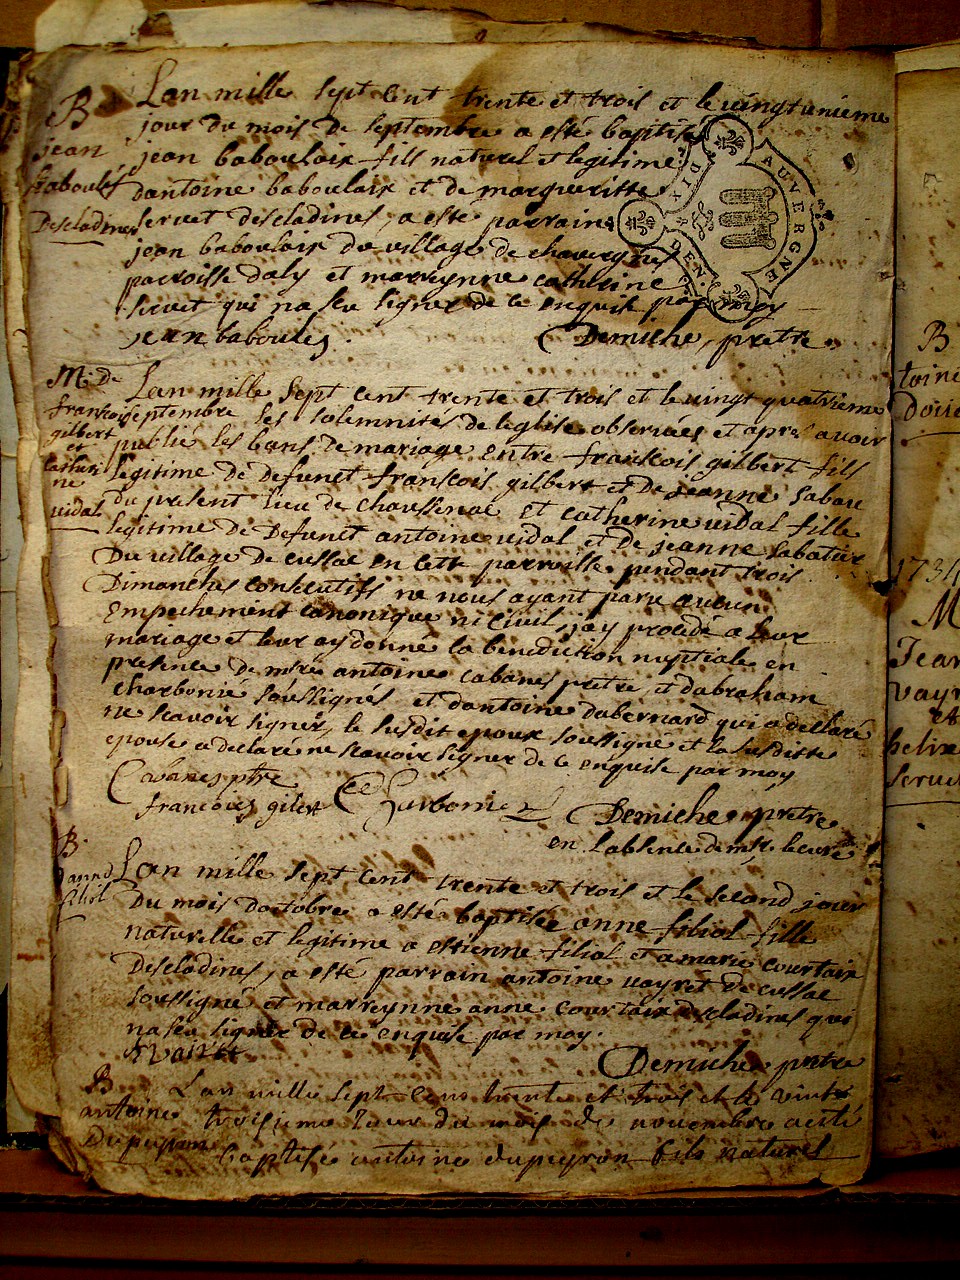 B
jean
baboulés
Descladines
Lan mille sept Cent trente et trois et le vingtunieme
jour du mois de septembre a esté baptisé
jean baboulaix fils naturel et legitime
dantoine baboulaix et de margueritte
servet descladines, a esté parrain
jean baboulaix du village de chavergnes
parroisse daly et marreynne catherine
servet qui na seu signer de ce enquise par moy
jean baboules
Demiche, pretre
AUVERGNE
DIX DEN.
M. de
francois
gilbert
et
catheri
ne
vidal
Lan mille sept cent trente et trois et le vingt quatrieme
septembre les solemnités de leglise observées et apres avoir
publié les bans de mariage entre francois gilbert fils
legitime de defunct francois gilbert et de jeanne sabau
du present lieu de chaussenac et catherine vidal fille
legitime de Defunct antoine vidal et de jeanne sabatier
Du village de cussac en cette parroisse pendant trois
Dimanches consecutifs ne nous ayant paru aucun
Empechement canonique ni civil, jay procedé a leur
mariage et leur ay donné la benediction nuptiale en
presence de mre antoine cabanes pretre et dabraham
charbonié soussignés et dantoine dabernard qui a declaré
ne scavoir signer, le susdit epoux soussigné et la susditte
epouse a declare ne scavoir signer de ce enquise par moy
Cabanes ptre
francoies gilert
Demiche pretre
en Labsence de mr. le curé
B
anne
filiol
Lan mille sept cent trente et trois et le second jour
Du mois doctobre a esté baptisée anne filiol fille
naturelle et legitime a estienne filiol et a marie courtaix
Descladines, a esté parrain antoine vayret de cussac
soussigné et marreynne anne courtaix descladines qui
na seu signer de ce enquise par moy.
Demiche pretre
B
antoine
Dupeyron
Lan mille sept cens trente et trois et le vinte
troisieme Jour du mois de novembre a esté
baptisé antoine dupeyron fils naturel
B
toine
1734
M
Jean
vayr
et
helix
servet